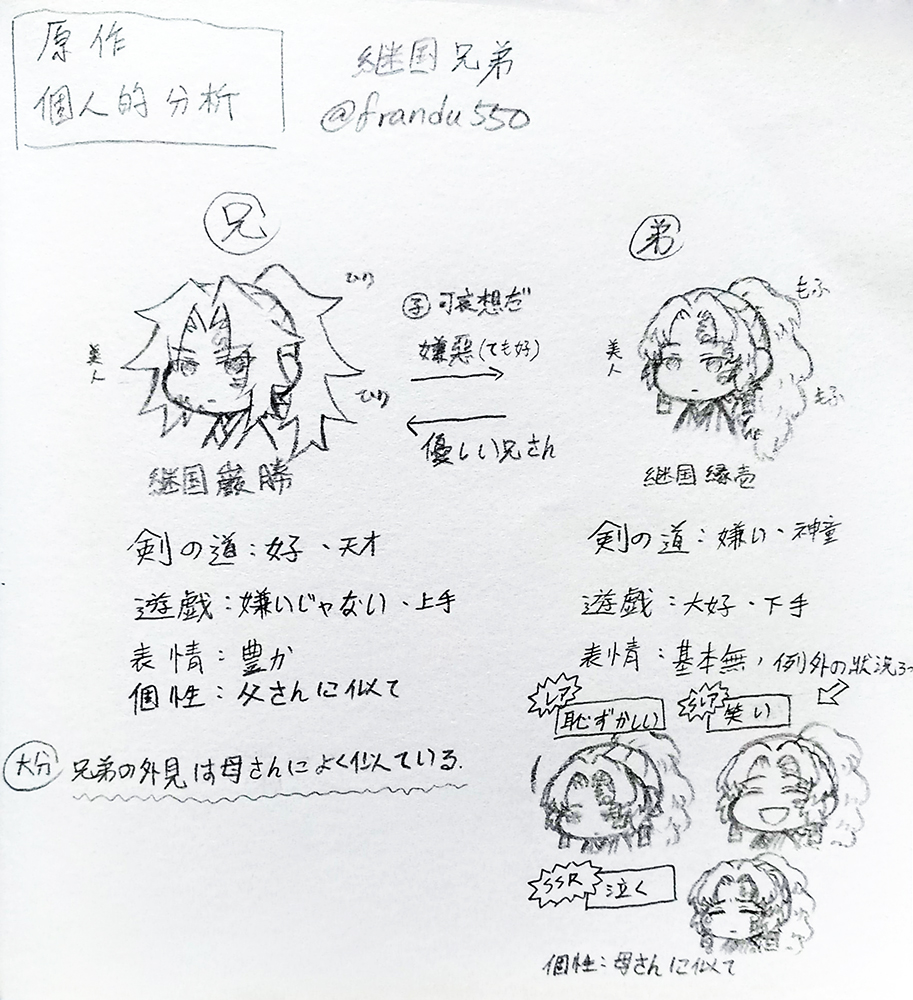 原作
個人的分析
継国兄弟
@frandu550
兄
美人
継国巌勝
子 可哀想だ
嫌悪(でも好)
優しい兄さん
弟
もふ
美人
もふ
継国縁壱
剣の道:好・天才
遊戯:嫌いじゃない・上手
表情:豊か
個性:父さんに似て
剣の道:嫌い・神童
遊戯:大好・下手
表情:基本無,例外の状況
レア
恥ずかしい
笑い
SSR
泣く
個性:母さんに似て
大分 兄弟の外見は母さんによく似ている.